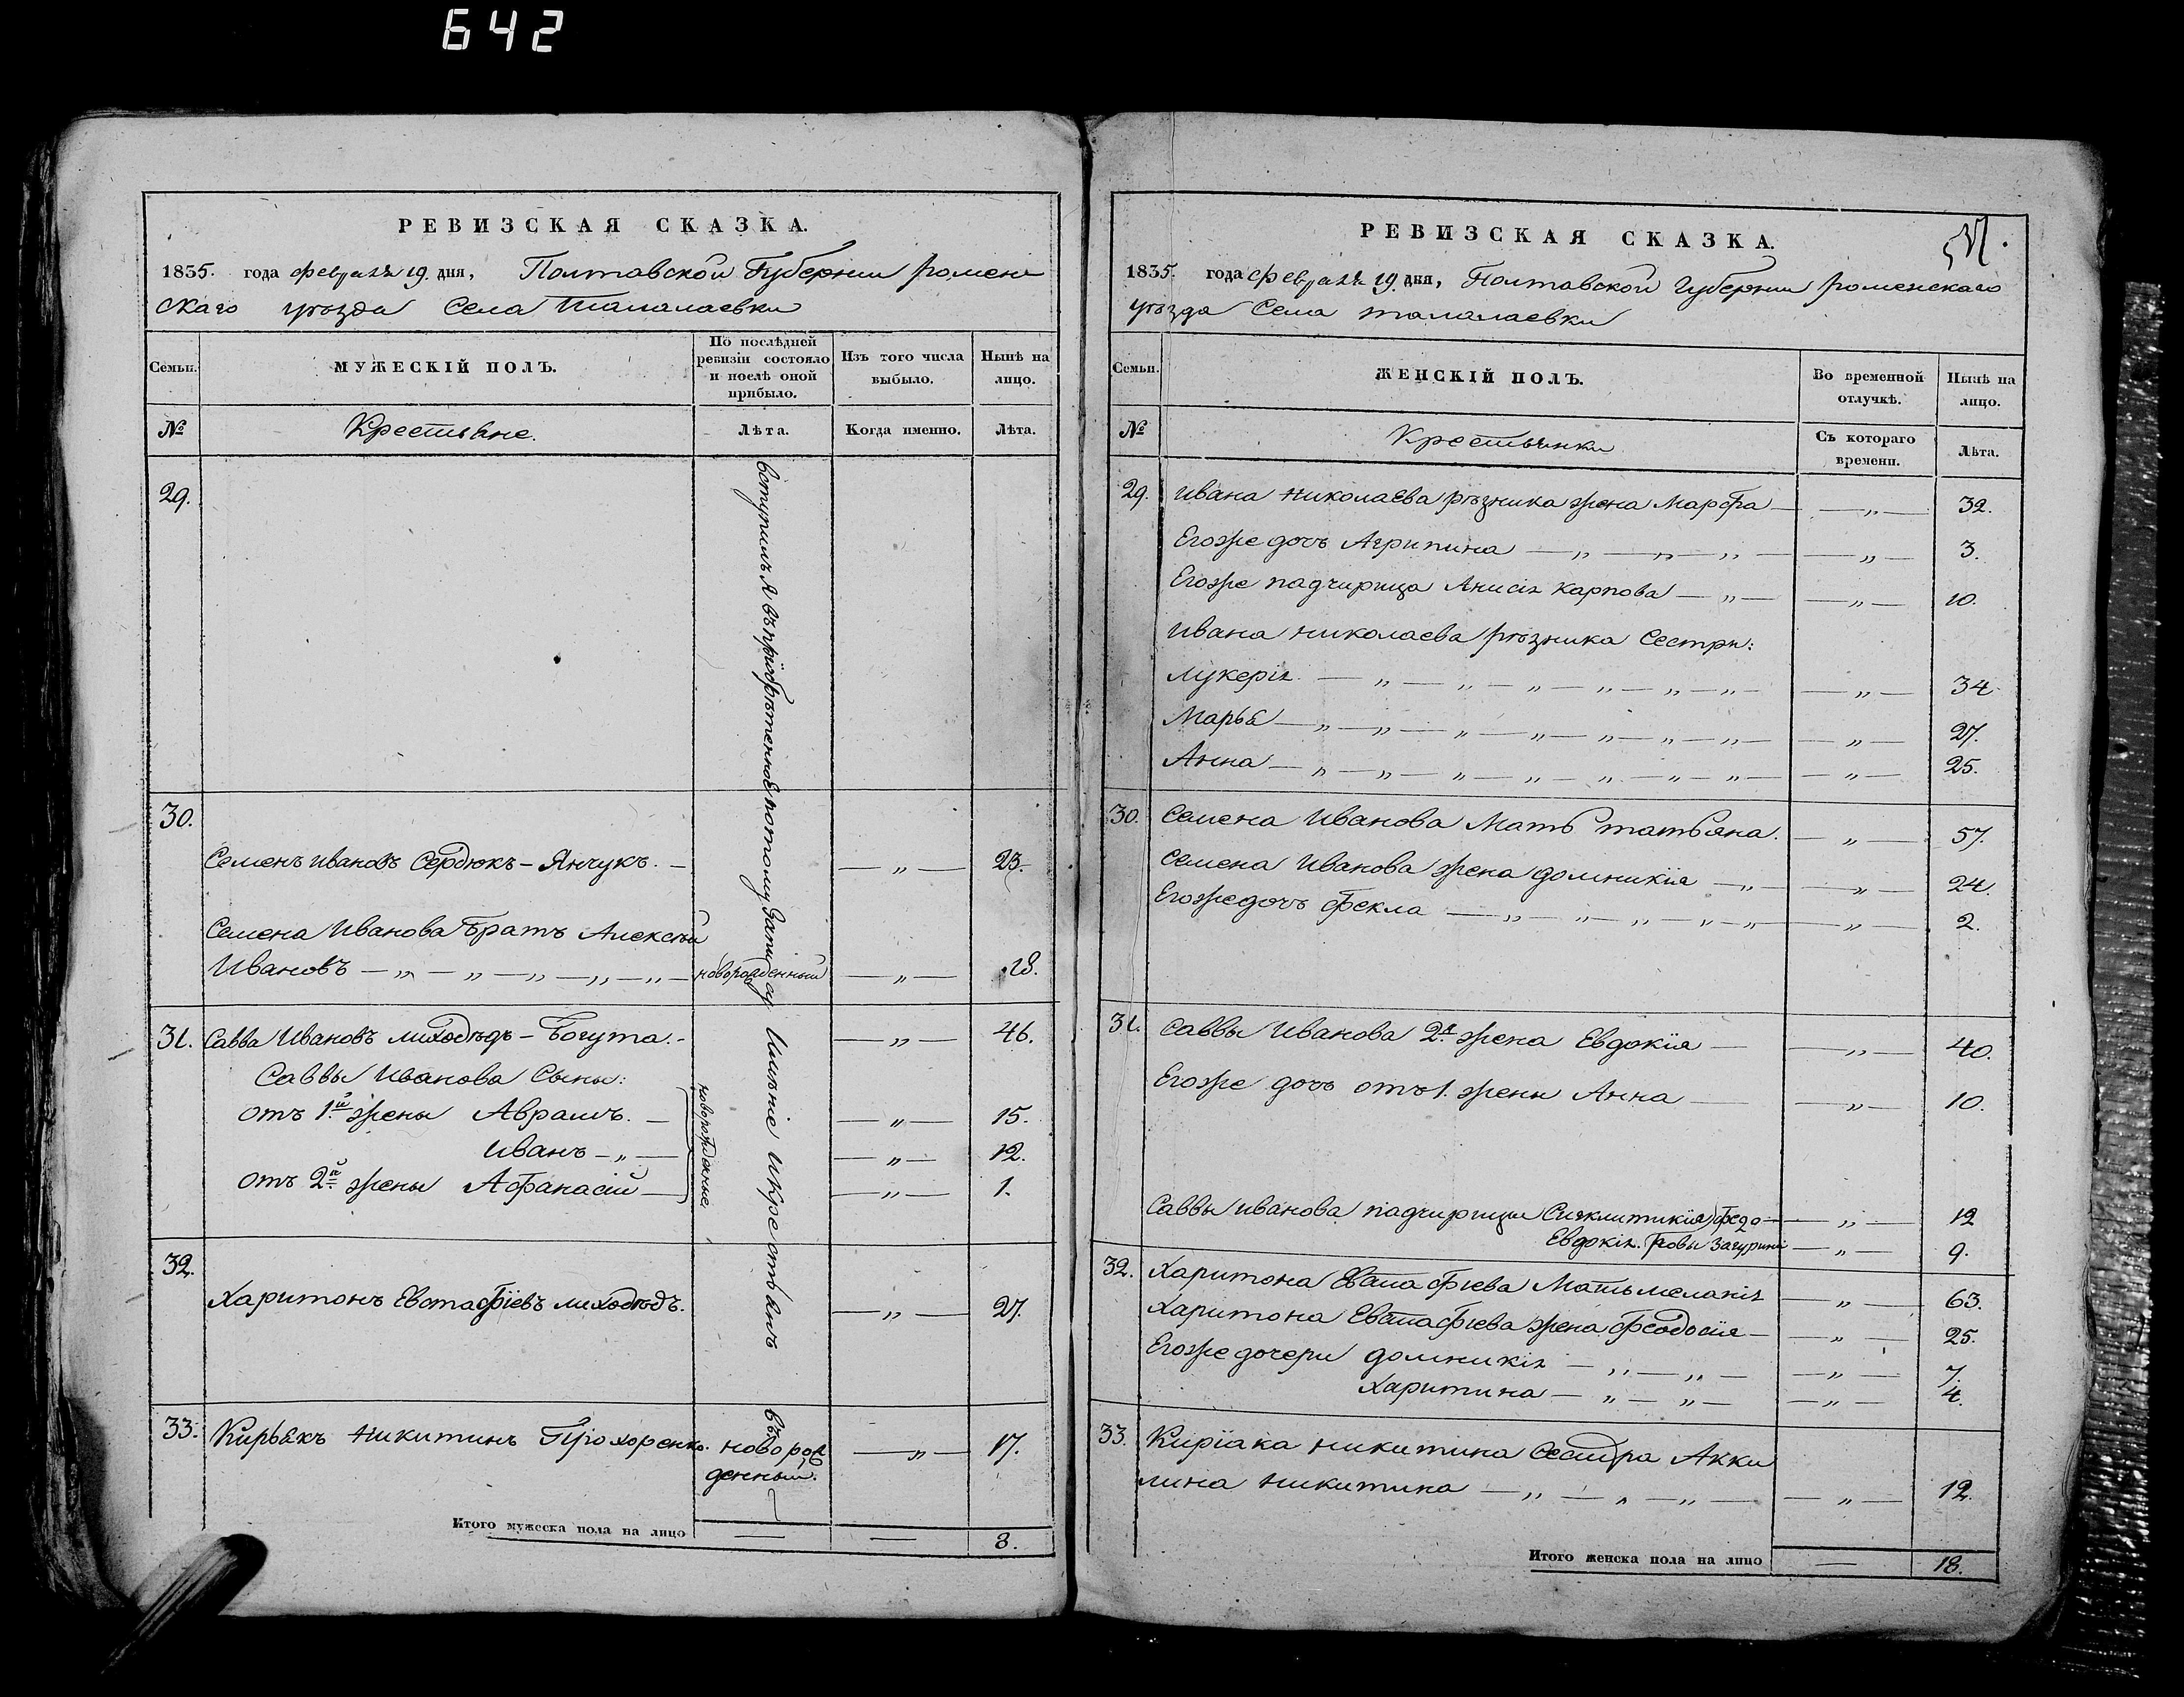 642
РЕВИЗСКАЯ СКАЗКА.
1835. года февраля 19. дня, Полтавской Губернии Ромен
скаго уезда Села Талалаевки
Семьи.
МУЖЕСКІЙ ПОЛЪ.
По послѣдней ревизіи состояло и послѣ оной прибыло.
Изъ того числа выбыло.
Нынѣ на лицо.
№
Крестьяне.
Лѣта.
Когда именно.
Лѣта.
29.
30.
Семенъ Ивановъ Сердюкъ - Янчукъ. — — „ — 23.
Семена Иванова Братъ Алексѣй
Ивановъ — „ — „ — „ — „ — „ — новорожденный — „ — 18.
31. Савва Ивановъ Лиходѣдъ - Богута. - — „ — 46.
Саввы Иванова Сыны:
отъ 1й жены Аврамъ. — — „ — 15.
Иванъ - „ — — „ — 12.
отъ 2й жены Афанасій — — „ — 1.
новорожденные
32.
Харитонъ Евстафіевъ Лиходѣдъ. — „ — 27.
33. Кирьякъ Никитинъ Прохоренко. новорож — „ — 17.
денный.
имѣніе и крестьянъ
въ
Итого мужеска пола на лицо — — 8.
РЕВИЗСКАЯ СКАЗКА.
1835. года февраля 19. дня, Полтавской Губернии Роменскаго
уѣзда Села Талалаевки
Семьи.
ЖЕНСКІЙ ПОЛЪ.
Во временной отлучкѣ.
Нынѣ на лицо.
№
Крестьянки
Съ котораго времени.
Лѣта.
29. Ивана Николаева рѣзника жена Марфа — — „ — 32.
Егоже дочь Агрипина — „ — „ — „ — — „ — 3.
Егоже падчирица Анисія Карпова — „ — — „ — 10.
Ивана Николаева рѣзника Сестры:
Лукерія — „ — „ — „ — „ — „ — „ — — „ — 34.
Марья — „ — „ — „ — „ — „ — „ — „ — — „ — 27.
Анна — „ — „ — „ — „ — „ — „ — „ — — „ — 25.
30. Семена Иванова Мать татьяна. — „ — 57.
Семена Иванова жена домникія — „ — — „ — 24.
Егоже дочь Фекла — „ — „ — „ — „ — „ — „ — 2.
31. Саввы Иванова 2я жена Евдокія — — „ — 40.
Егоже дочь отъ 1. жены Анна — — „ — 10.
Саввы Иванова падчирицы Синклитикія Федо — „ — 12
Евдокія. ровы — „ — 9.
32. Харитона Евстафіева Мать меланія — „ — 63.
Харитона Евстафіева жена Феодосія — — „ — 25.
Егоже дочери домникія — „ — „ — — „ — 7.
Харитина — „ — „ — — „ — 4.
33. Киріака Никитина Сестра Акки
лина Никитина — „ — „ — „ — — „ — 12.
Итого женска пола на лицо — 18.